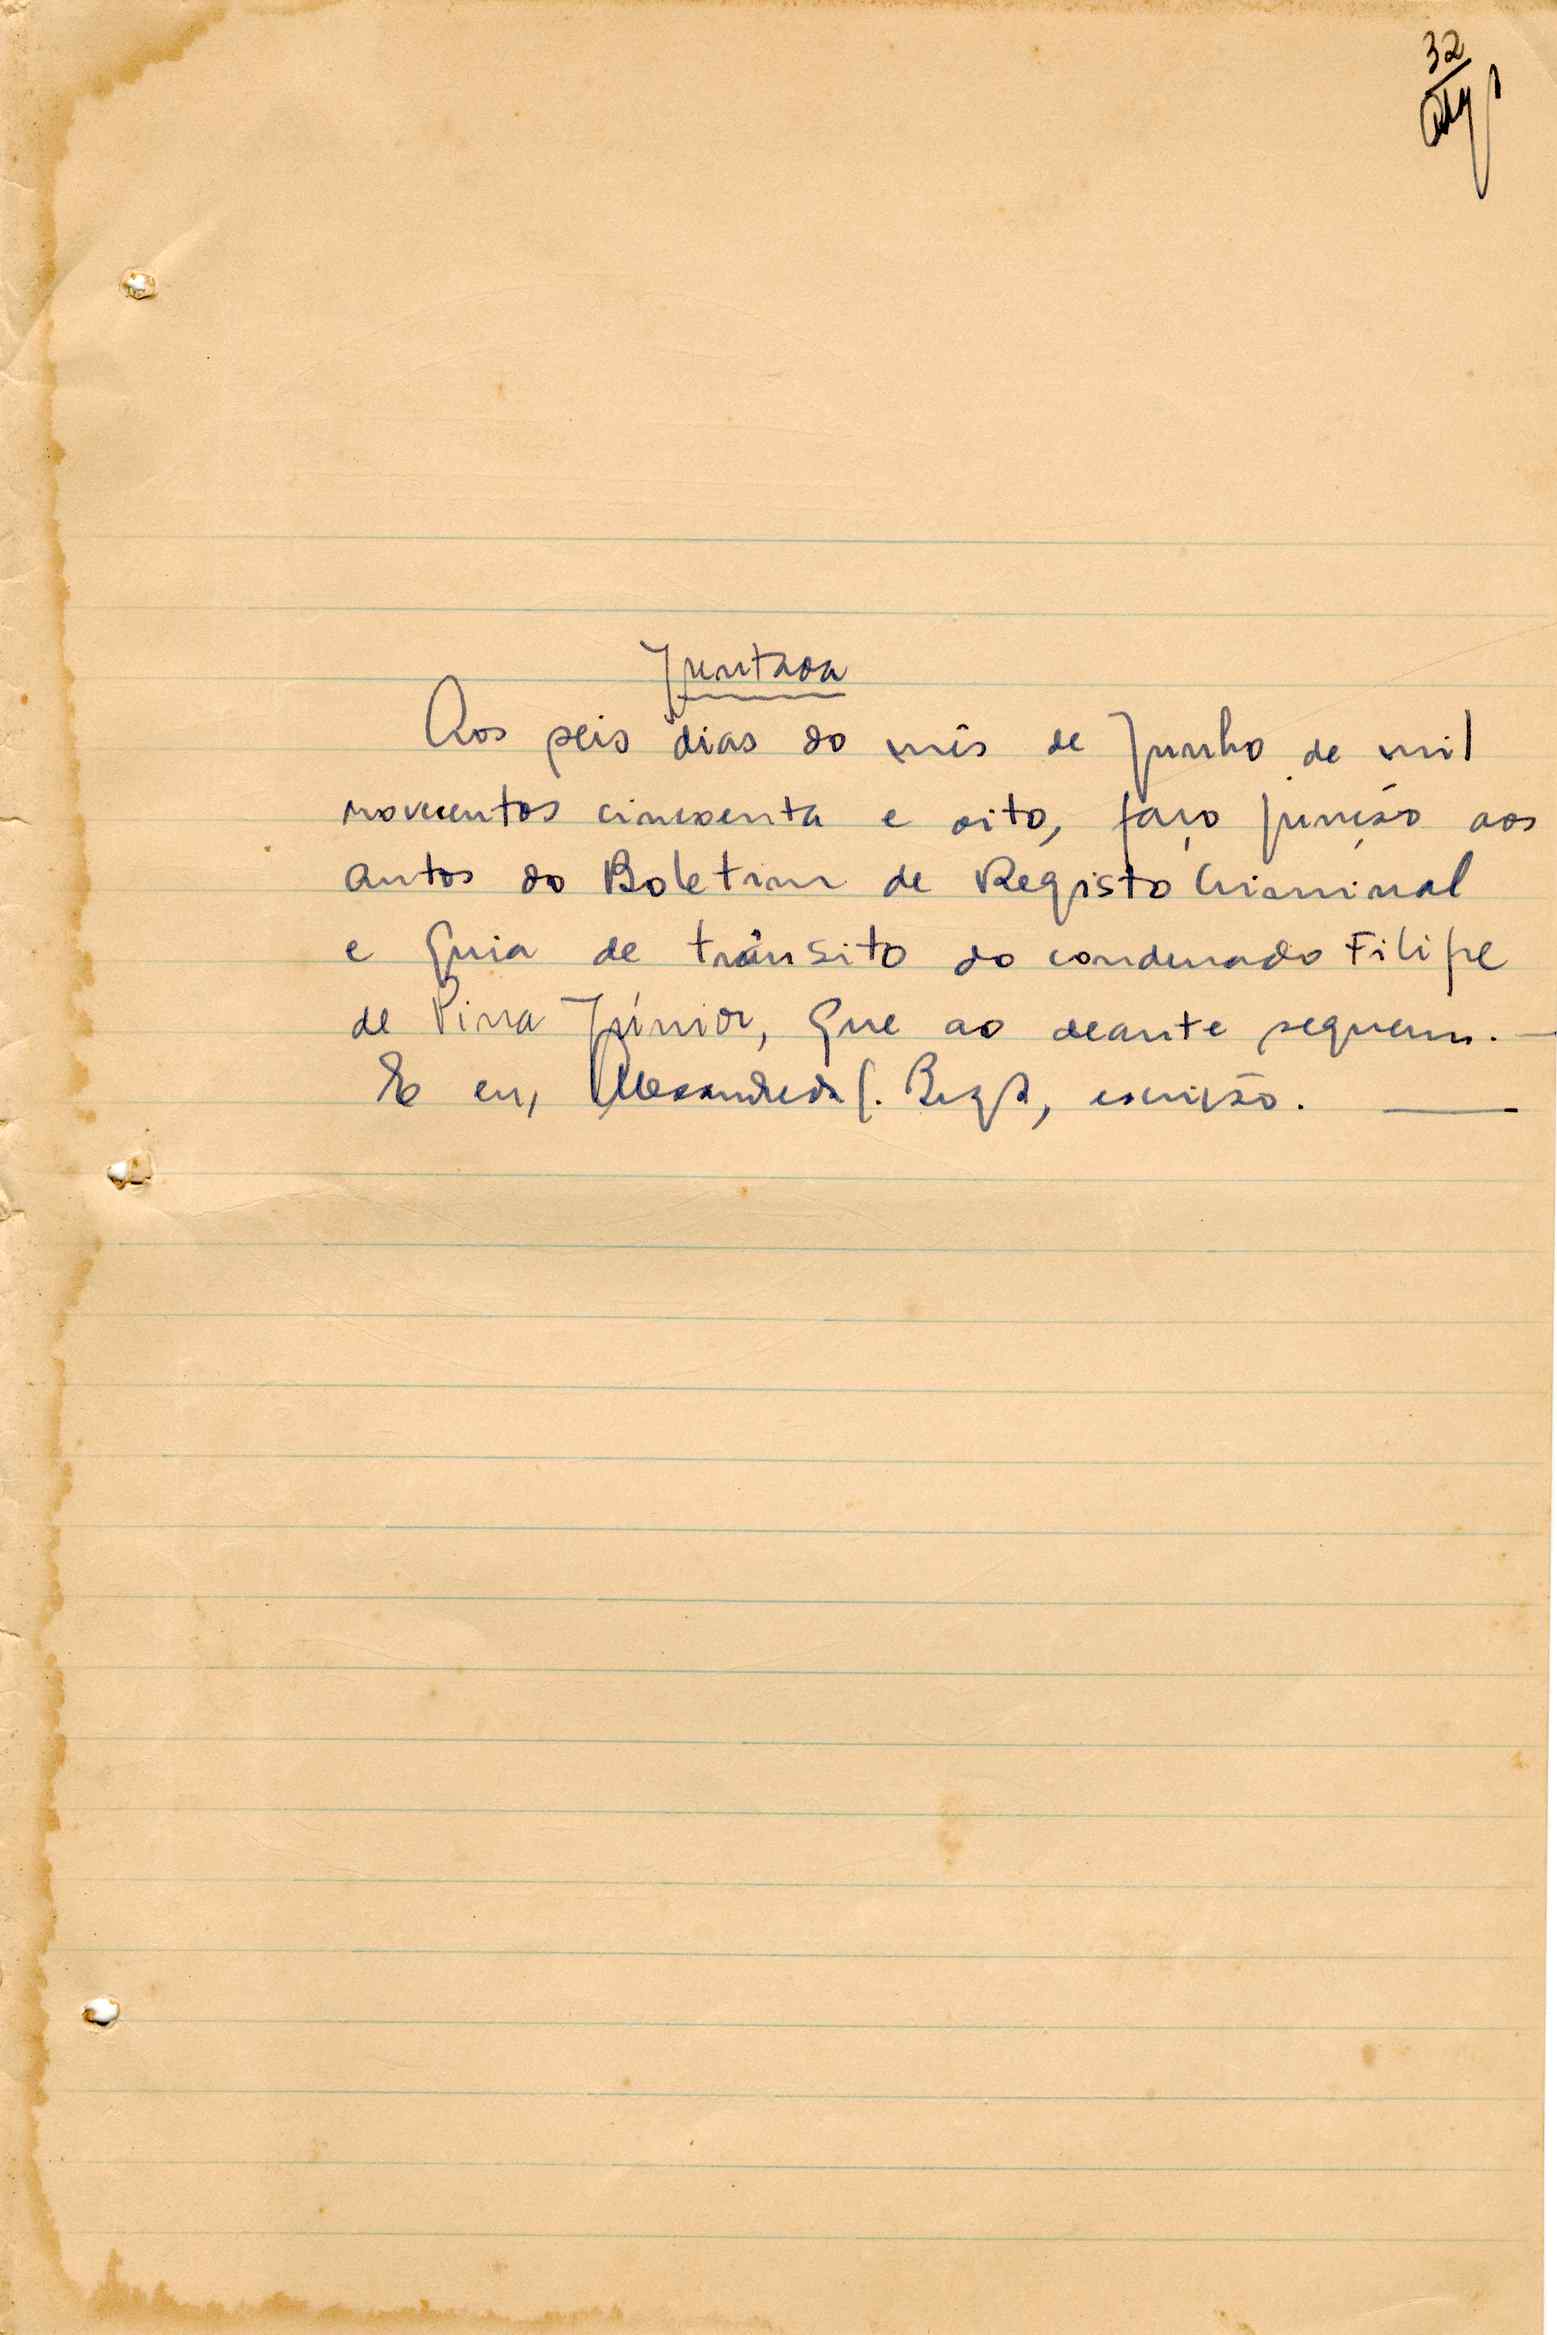 32
Juntada
Aos seis dias do mês de Junho de mil
novecentos cincoenta e oito, faço junção aos
autos do Boletim de Registo Criminal
e Guia de trânsito do condenado Filipe
de Pina Júnior, que ao deante seguem. —
E eu, Alexandre da, escrivão. —